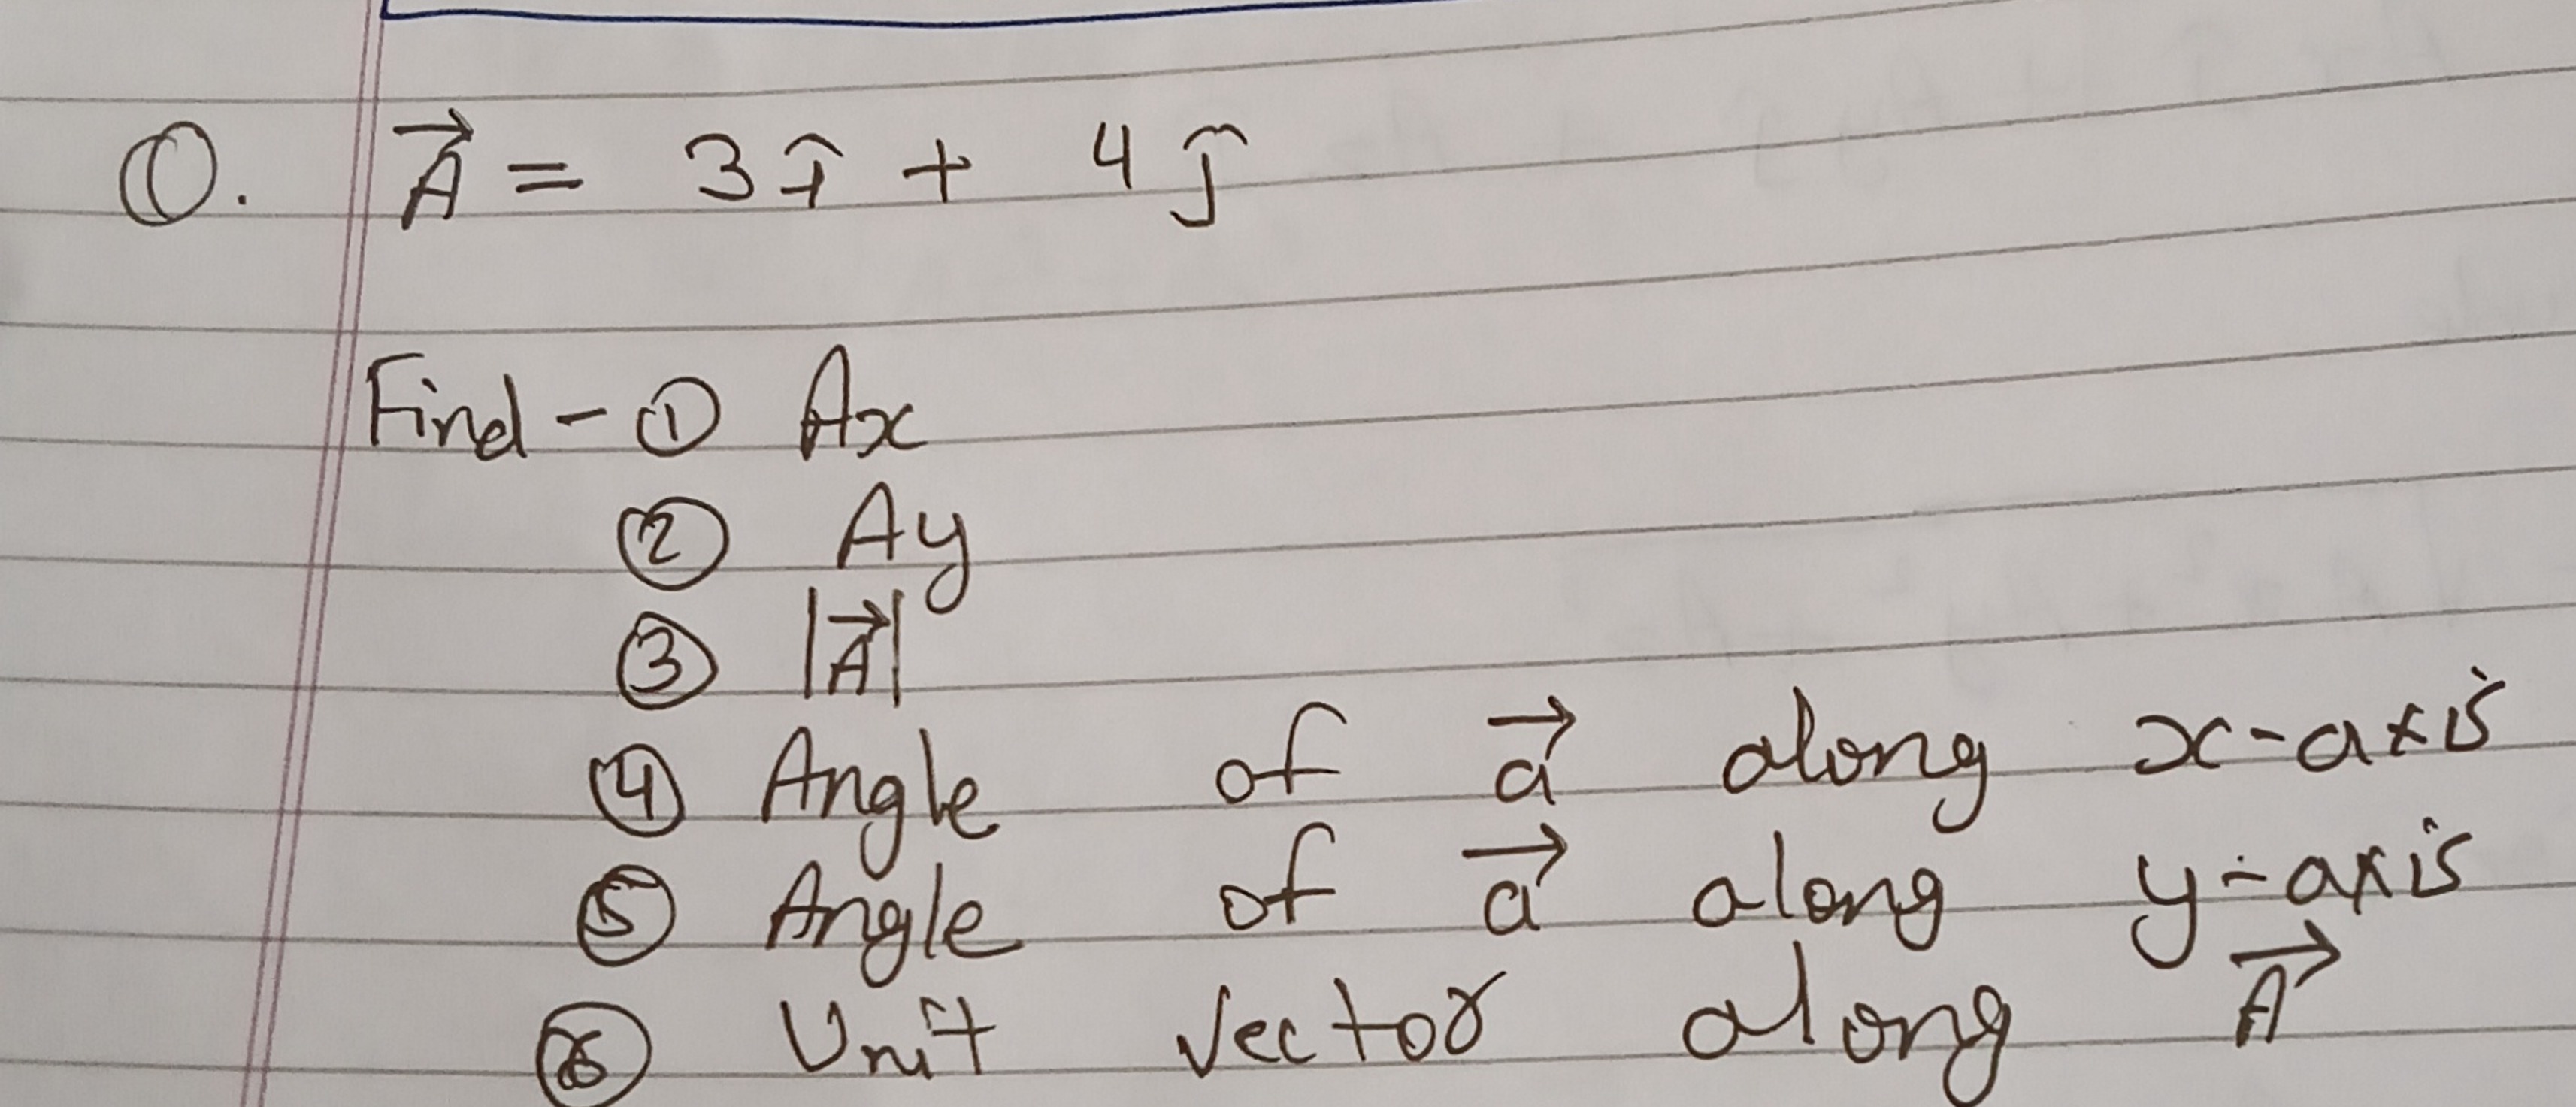 Q. A⃗ = 3î + 4ĵ
Find - ① Ax
② Ay
③ |A⃗|
④ Angle of a⃗ along x-axis
⑤ Angle of a⃗ along y-axis
⑥ Unit vector along A⃗